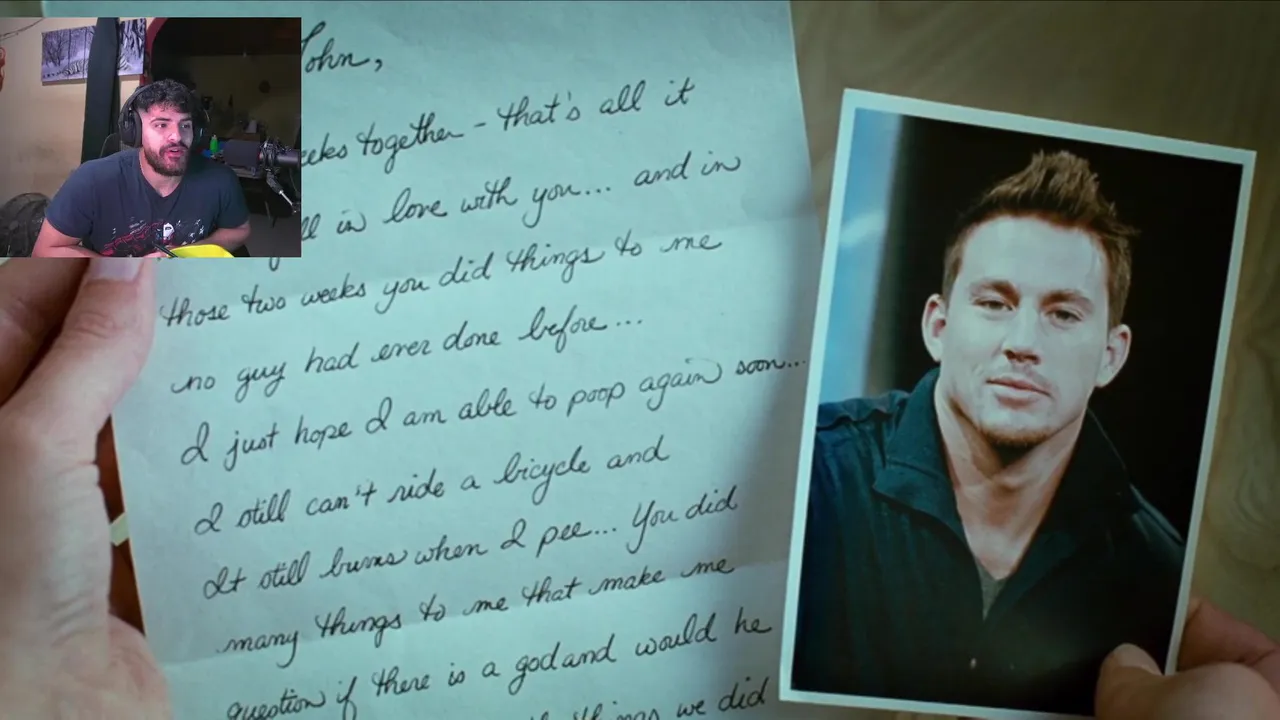 John,
together - that's all it
in love with you... and in
those two weeks you did things to me
no guy had ever done before...
I just hope I am able to poop again soon...
I still can't ride a bicycle and
It still burns when I pee... You did
many things to me that make me
question if there is a god and would he
things we did